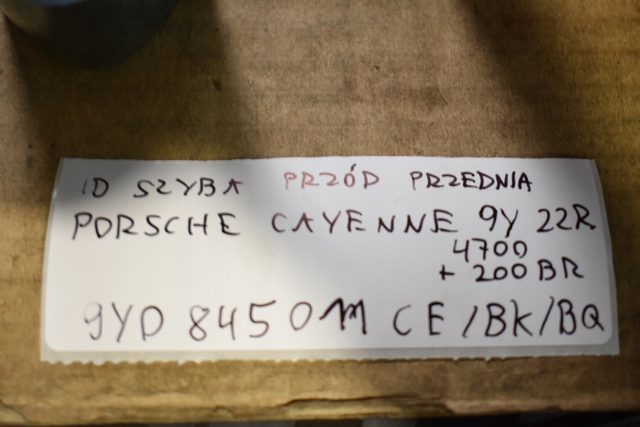 ID SZYBA PRZÓD PRZEDNIA
PORSCHE CAYENNE 9Y 22R
4700
+ 200 BR
9YD 845 0M CE/BK/BQ